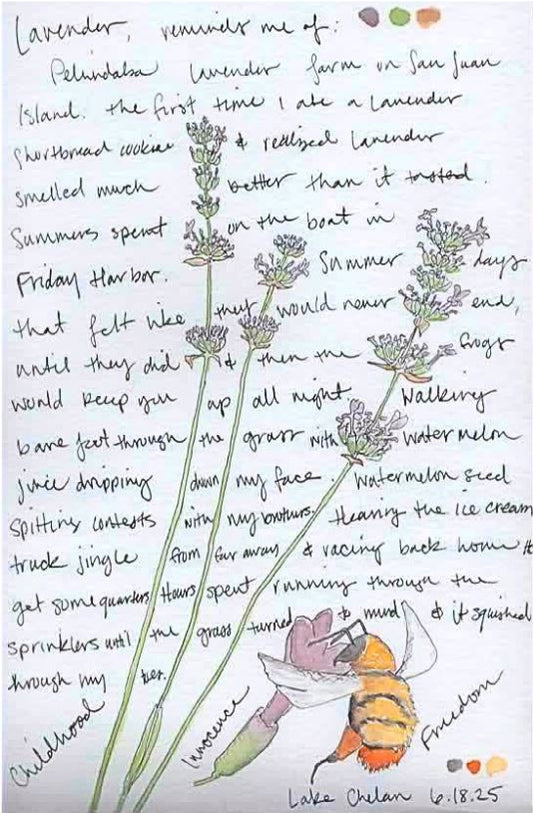 Lavender, reminds me of:
Pelindaba lavender farm on San Juan
Island. the first time I ate a lavender
shortbread cookie & realized lavender
smelled much better than it tasted.
Summers spent on the boat in
Friday Harbor. Summer days
that felt like they would never end,
until they did & then the frogs
would keep you up all night. Walking
bare foot through the grass with watermelon
juice dripping down my face. Watermelon seed
spitting contests with my brothers. Hearing the ice cream
truck jingle from far away & racing back home to
get some quarters. Hours spent running through the
sprinklers until the grass turned to mud & it squished
through my toes.
Childhood
Innocence
Freedom
Lake Chelan 6.18.25